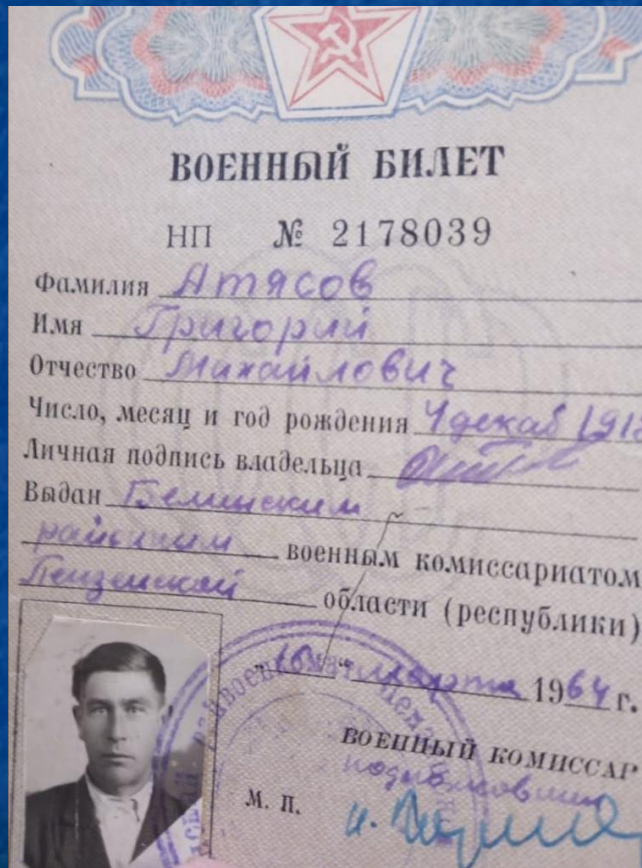 ВОЕННЫЙ БИЛЕТ
НП № 2178039
Фамилия Атясов
Имя Григорий
Отчество Михайлович
Число, месяц и год рождения 4 декаб 191
Личная подпись владельца
Выдан Белинским
районным военным комиссариатом
Пензенской области (республики)
"16" марта 1964 г.
ВОЕННЫЙ КОМИССАР
подполковник
М. П.